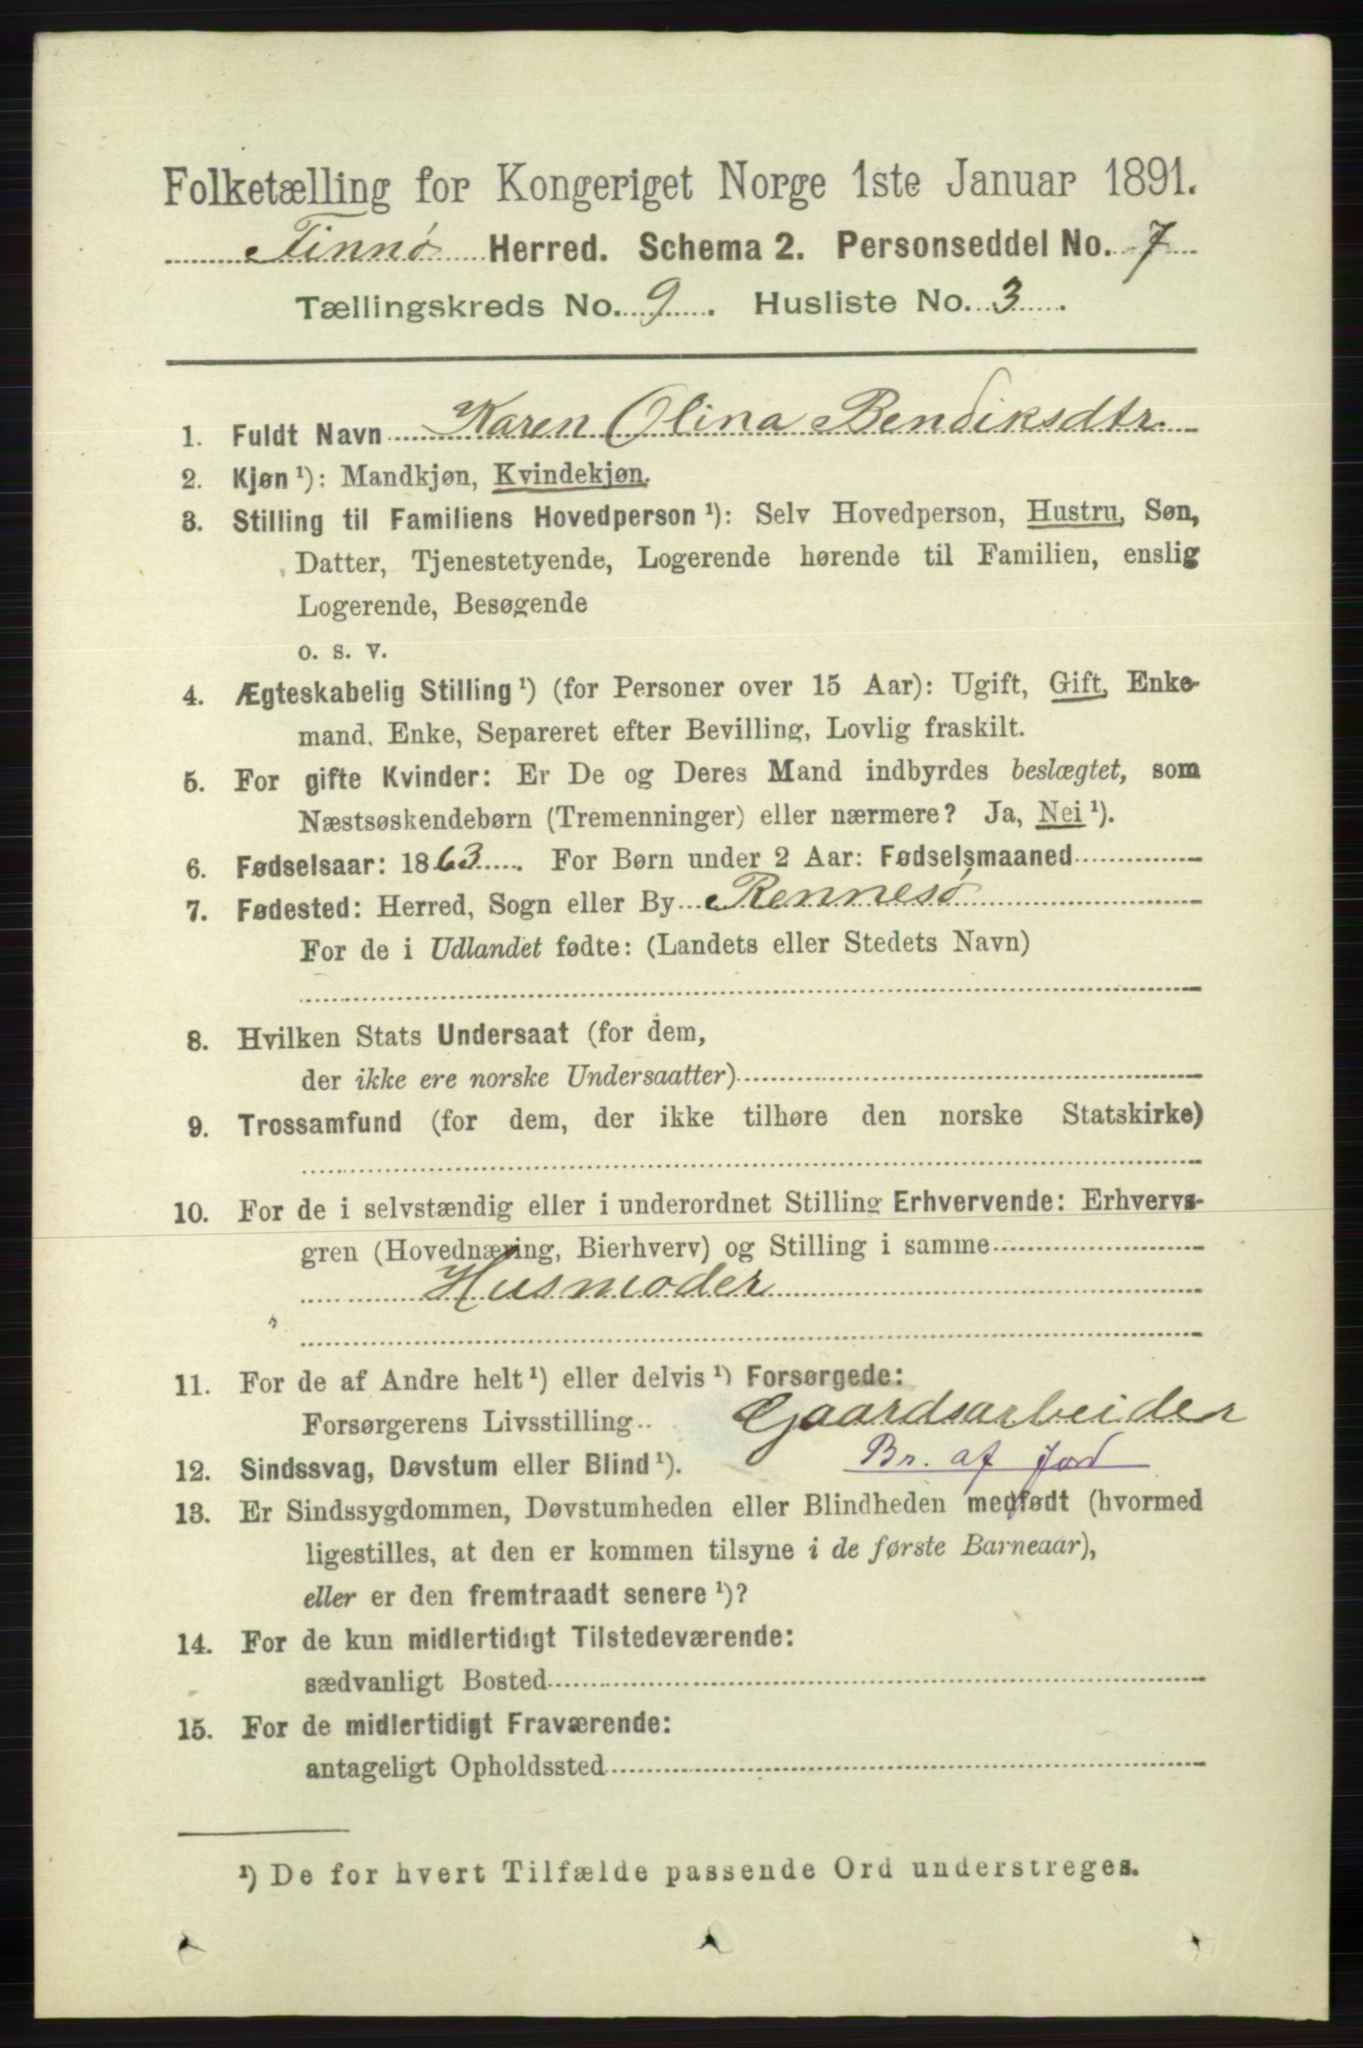 Folketælling for Kongeriget Norge 1ste Januar 1891.
Finnø Herred. Schema 2. Personseddel No. 7
Tællingskreds No. 9. Husliste No. 3.
1. Fuldt Navn Karen Olina Bendiksdtr.
2. Kjøn ¹): Mandkjøn, Kvindekjøn.
3. Stilling til Familiens Hovedperson ¹): Selv Hovedperson, Hustru, Søn,
Datter, Tjenestetyende, Logerende hørende til Familien, enslig
Logerende, Besøgende
o. s. v.
4. Ægteskabelig Stilling ¹) (for Personer over 15 Aar): Ugift, Gift, Enke-
mand. Enke, Separeret efter Bevilling, Lovlig fraskilt.
5. For gifte Kvinder: Er De og Deres Mand indbyrdes beslægtet, som
Næstsøskendebørn (Tremenninger) eller nærmere? Ja, Nei ¹).
6. Fødselsaar: 1863. For Børn under 2 Aar: Fødselsmaaned
7. Fødested: Herred, Sogn eller By Rennesø
For de i Udlandet fødte: (Landets eller Stedets Navn)
8. Hvilken Stats Undersaat (for dem,
der ikke ere norske Undersaatter)
9. Trossamfund (for dem, der ikke tilhøre den norske Statskirke)
10. For de i selvstændig eller i underordnet Stilling Erhvervende: Erhvervs-
gren (Hovednæring, Bierhverv) og Stilling i samme
Husmoder
11. For de af Andre helt ¹) eller delvis ¹) Forsørgede:
Forsørgerens Livsstilling Gaardsarbeider
12. Sindssvag, Døvstum eller Blind ¹). Br. af Jord
13. Er Sindssygdommen, Døvstumheden eller Blindheden medfødt (hvormed
ligestilles, at den er kommen tilsyne i de første Barneaar),
eller er den fremtraadt senere ¹)?
14. For de kun midlertidigt Tilstedeværende:
sædvanligt Bosted
15. For de midlertidigt Fraværende:
antageligt Opholdssted
¹) De for hvert Tilfælde passende Ord understreges.